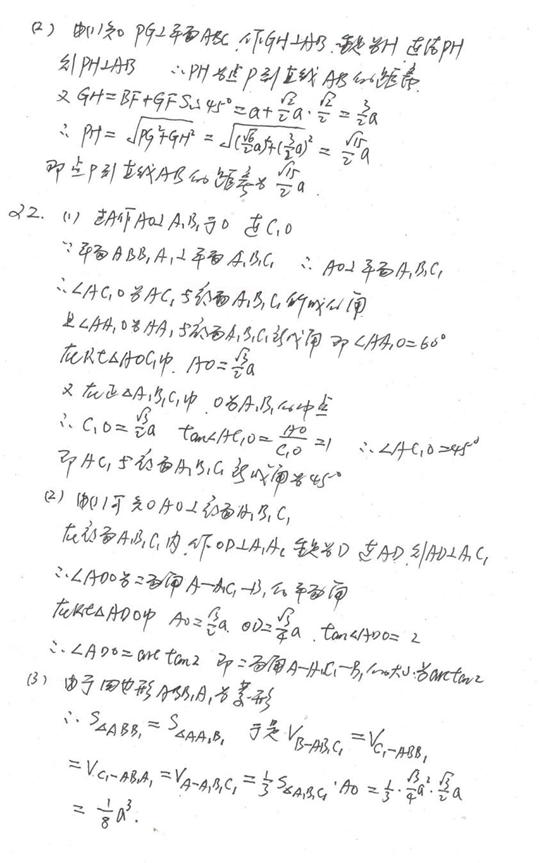 (2) 由(1)知 PG⊥平面ABC 作GH⊥AB 垂足为H 连结PH
则PH⊥AB ∴PH为点P到直线AB的距离
又 GH=BF+GFSin45°=a+√2/2a·√2/2=3/2a
∴ PH=√(PG²+GH²)=√((√6/2a)²+(3/2a)²)=√15/2a
即点P到直线AB的距离为√15/2a
22. (1) 过A作AO⊥A₁B₁于O 连C₁O
∵平面ABB₁A₁⊥平面A₁B₁C₁ ∴ AO⊥平面A₁B₁C₁
∴∠AC₁O为AC₁与底面A₁B₁C₁所成的角
且∠AA₁O为AA₁与底面A₁B₁C₁所成角 即∠AA₁O=60°
在Rt△AOC₁中 AO=√3/2a
又 在正△A₁B₁C₁中 O为A₁B₁的中点
∴ C₁O=√3/2a tan∠AC₁O=AO/C₁O=1 ∴∠AC₁O=45°
即AC₁与底面A₁B₁C₁所成角为45°
(2) 由(1)可知 AO⊥底面A₁B₁C₁
在底面A₁B₁C₁内 作OD⊥A₁C₁ 垂足为D 连AD 则AD⊥A₁C₁
∴∠ADO为二面角A-A₁C₁-B₁的平面角
在Rt△ADO中 AO=√3/2a OD=√3/4a tan∠ADO=2
∴∠ADO=arctan2 即二面角A-A₁C₁-B₁的大小为arctan2
(3) 由于四边形ABB₁A₁为菱形
∴ S△ABB₁=S△AA₁B₁ 于是 V_B-AB₁C₁=V_C₁-ABB₁
=V_C₁-AB₁A₁=V_A-A₁B₁C₁=1/3S△A₁B₁C₁·AO=1/3·√3/4a²·√3/2a
=1/8a³.